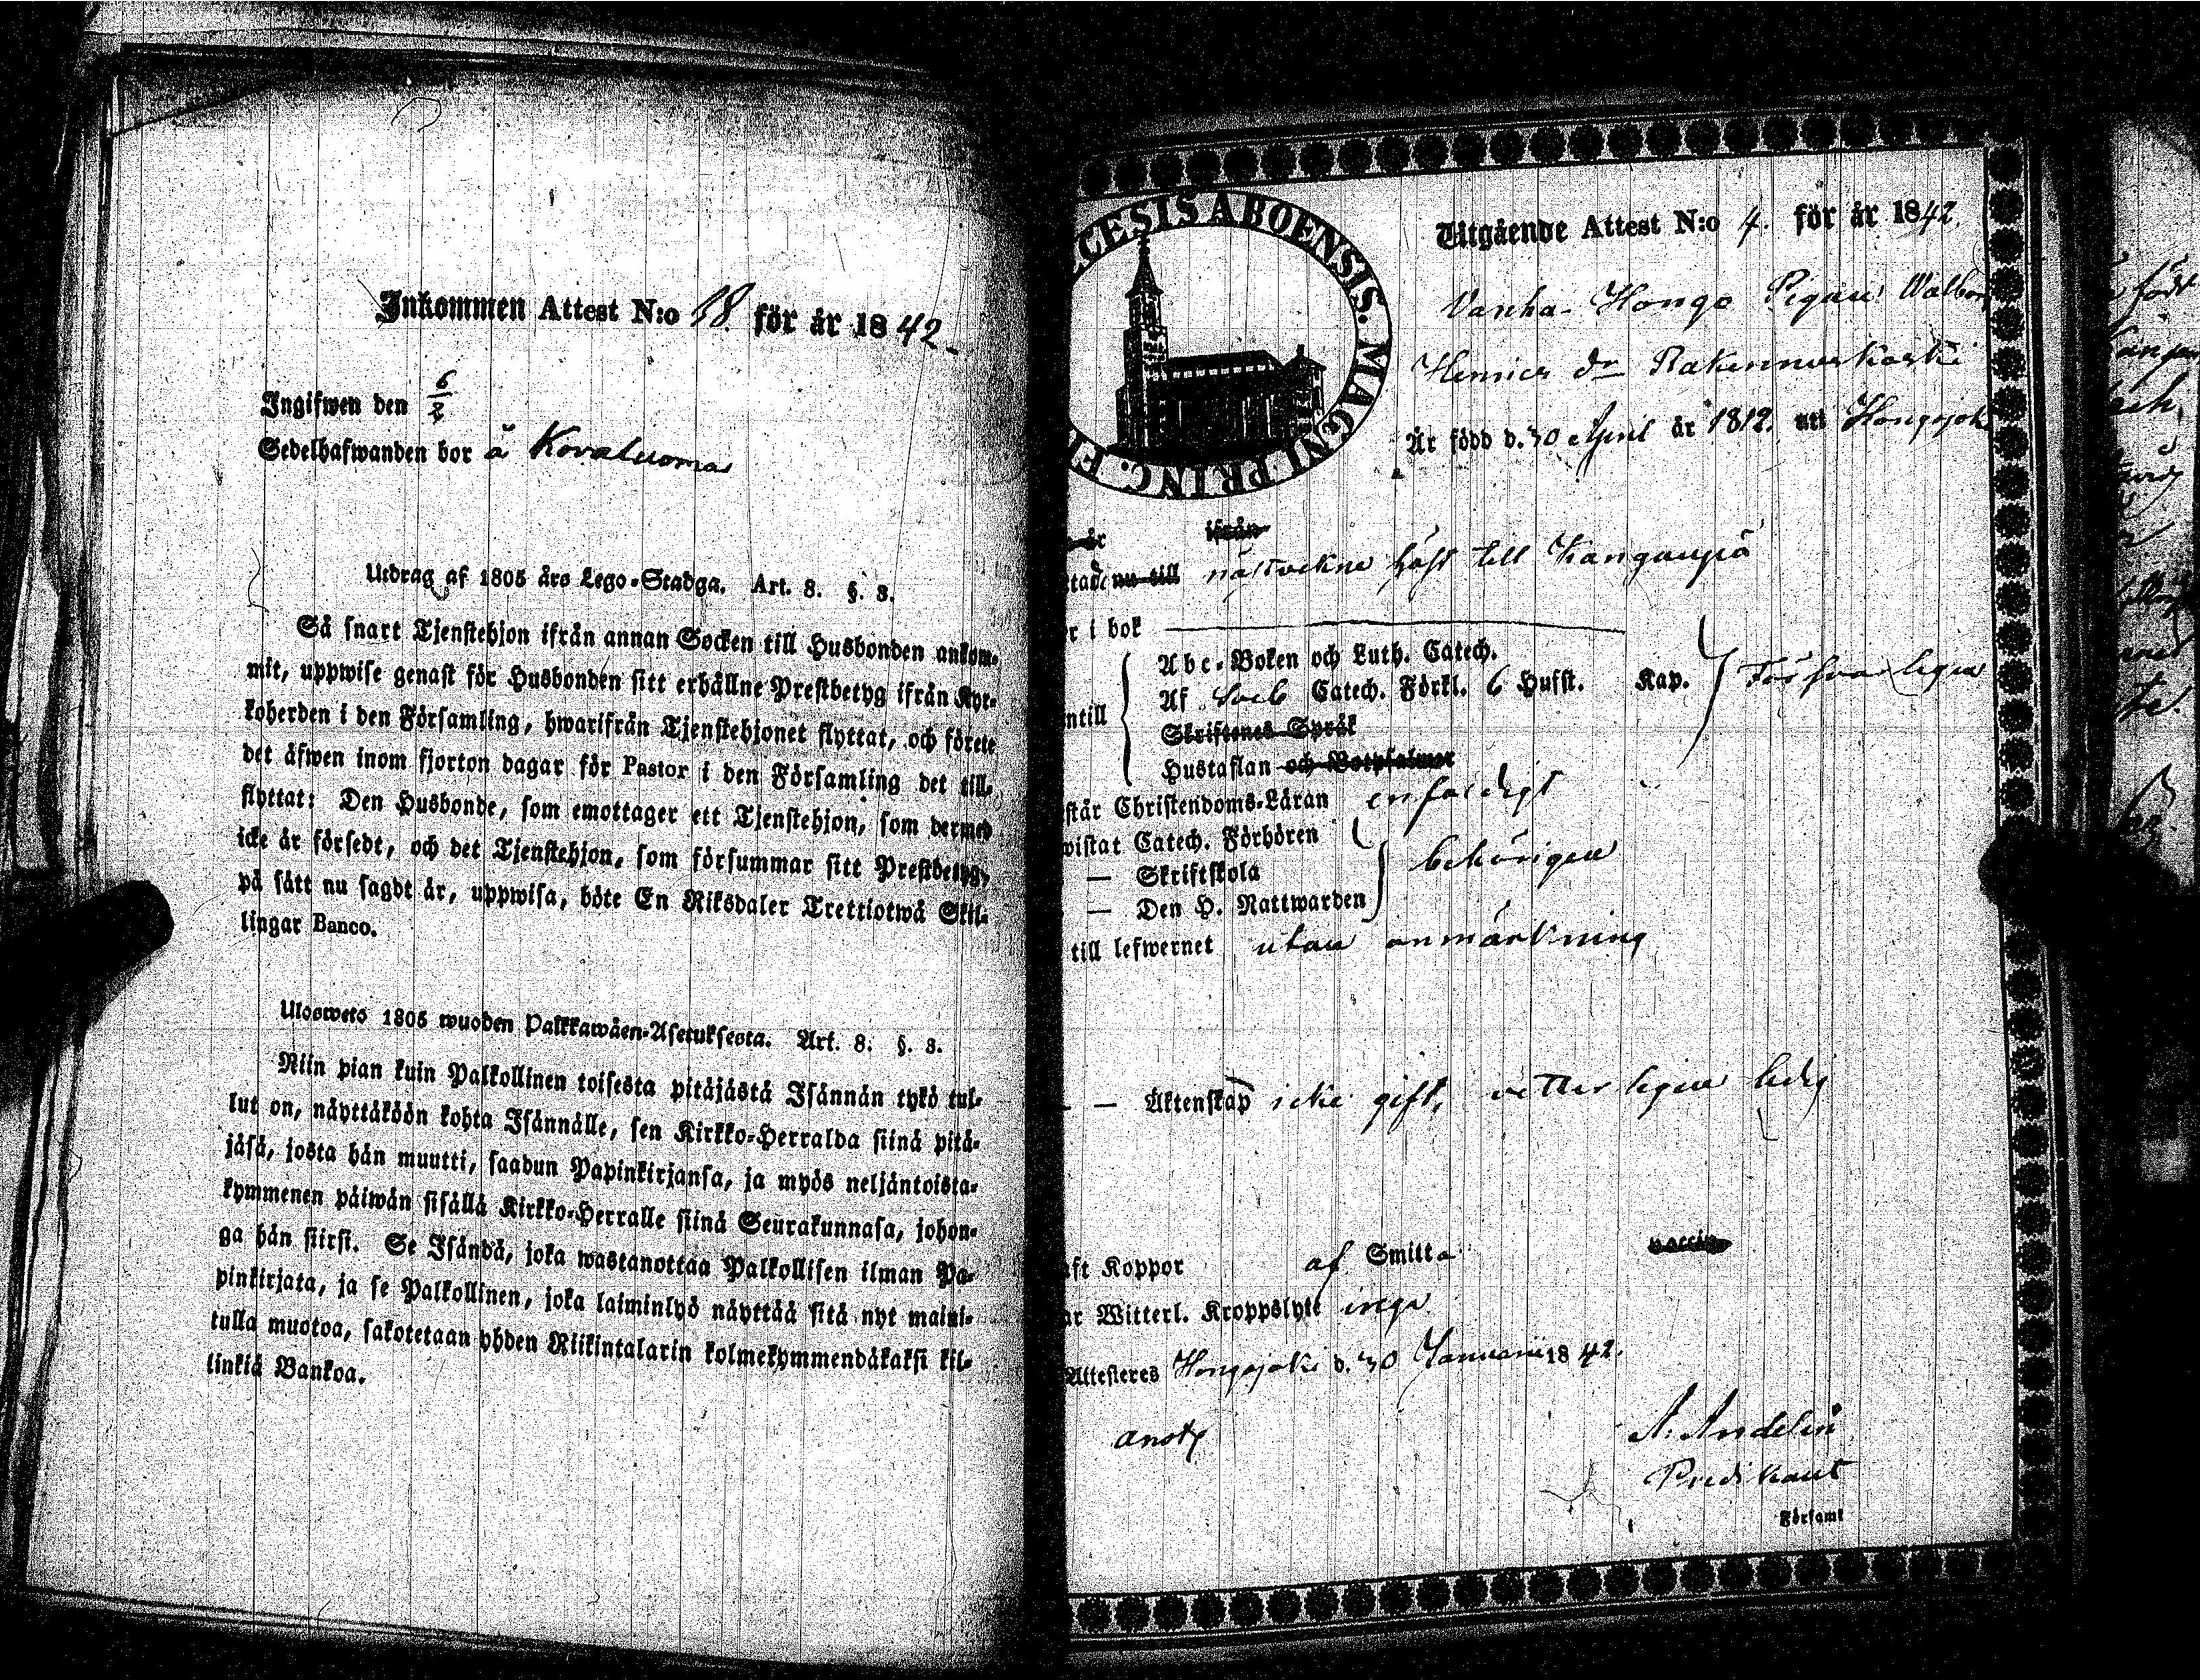 Inkommen Attest N:o 18 för år 1842.
Ingifwen den 6/2
Sedelhafwanden bor å Kovaluoma
Utdrag af 1805 års Lego-Stadga. Art. 8. §. 3.
Så snart Tjenstehjon ifrån annan Socken till Husbonden ankom-
mit, uppwise genast för Husbonden sitt erhållne Prestbetyg ifrån Kyr-
koherden i den Församling, hwarifrån Tjenstehjonet flyttat, och förete
det äfwen inom fjorton dagar för Pastor i den Församling det till-
flyttat: Den Husbonde, som emottager ett Tjenstehjon, som dermed
icke är försedt, och det Tjenstehjon, som försummar sitt Prestbetyg,
på sätt nu sagdt är, uppwisa, böte En Riksdaler Trettiotwå Skil-
lingar Banco.
Ulosweto 1805 wuoden Palkkawäen-Asetuksesta. Art. 8. §. 3.
Niin pian kuin Palkollinen toisesta pitäjästä Isännän tykö tul-
lut on, näyttäköön kohta Isännälle, sen Kirkko-Herralda siinä pitä-
jäsä, josta hän muutti, saadun Papinkirjansa, ja myös neljäntoista-
kymmenen päiwän sisällä Kirkko-Herralle siinä Seurakunnasa, johon-
ga hän siirsi. Se Isändä, joka wastanottaa Palkollisen ilman Pa-
pinkirjata, ja se Palkollinen, joka laiminlyö näyttää sitä nyt maini-
tulla muotoa, sakotetaan yhden Riikintalarin kolmekymmendäkaksi kil-
linkiä Bankoa.
CESIS ABOENSIS. MAGNI PRINC. F
Utgående Attest N:o 4. för år 1842.
Vanha-Hongo Pigan Walborg
Henrics dr Rakennuskoski
Är född d. 30 April år 1812. uti Hongojok
år ifrån
nu till nästvekne höst till Kangasniemi
r i bok
Abc-Boken och Luth. Catech.
Af Sveb Catech. Förkl. 6 Hufst. Kap. Försvarligen
ntill
Skriftenes Språk
Hustaflan och Botpsalmer
står Christendoms-Läran enfaldigt
wistat Catech. Förhören
— Skriftskola behörigen
— Den H. Nattwarden
till lefwernet utan anmärkning
— — Äktenskap icke gift, vetterligen ledig
aft Koppor af Smitta
ar Witterl. Kroppslyte inga
Attesteres Hongojoki d. 30 Januarii 1842.
A. Andelin
Predikant
Församl